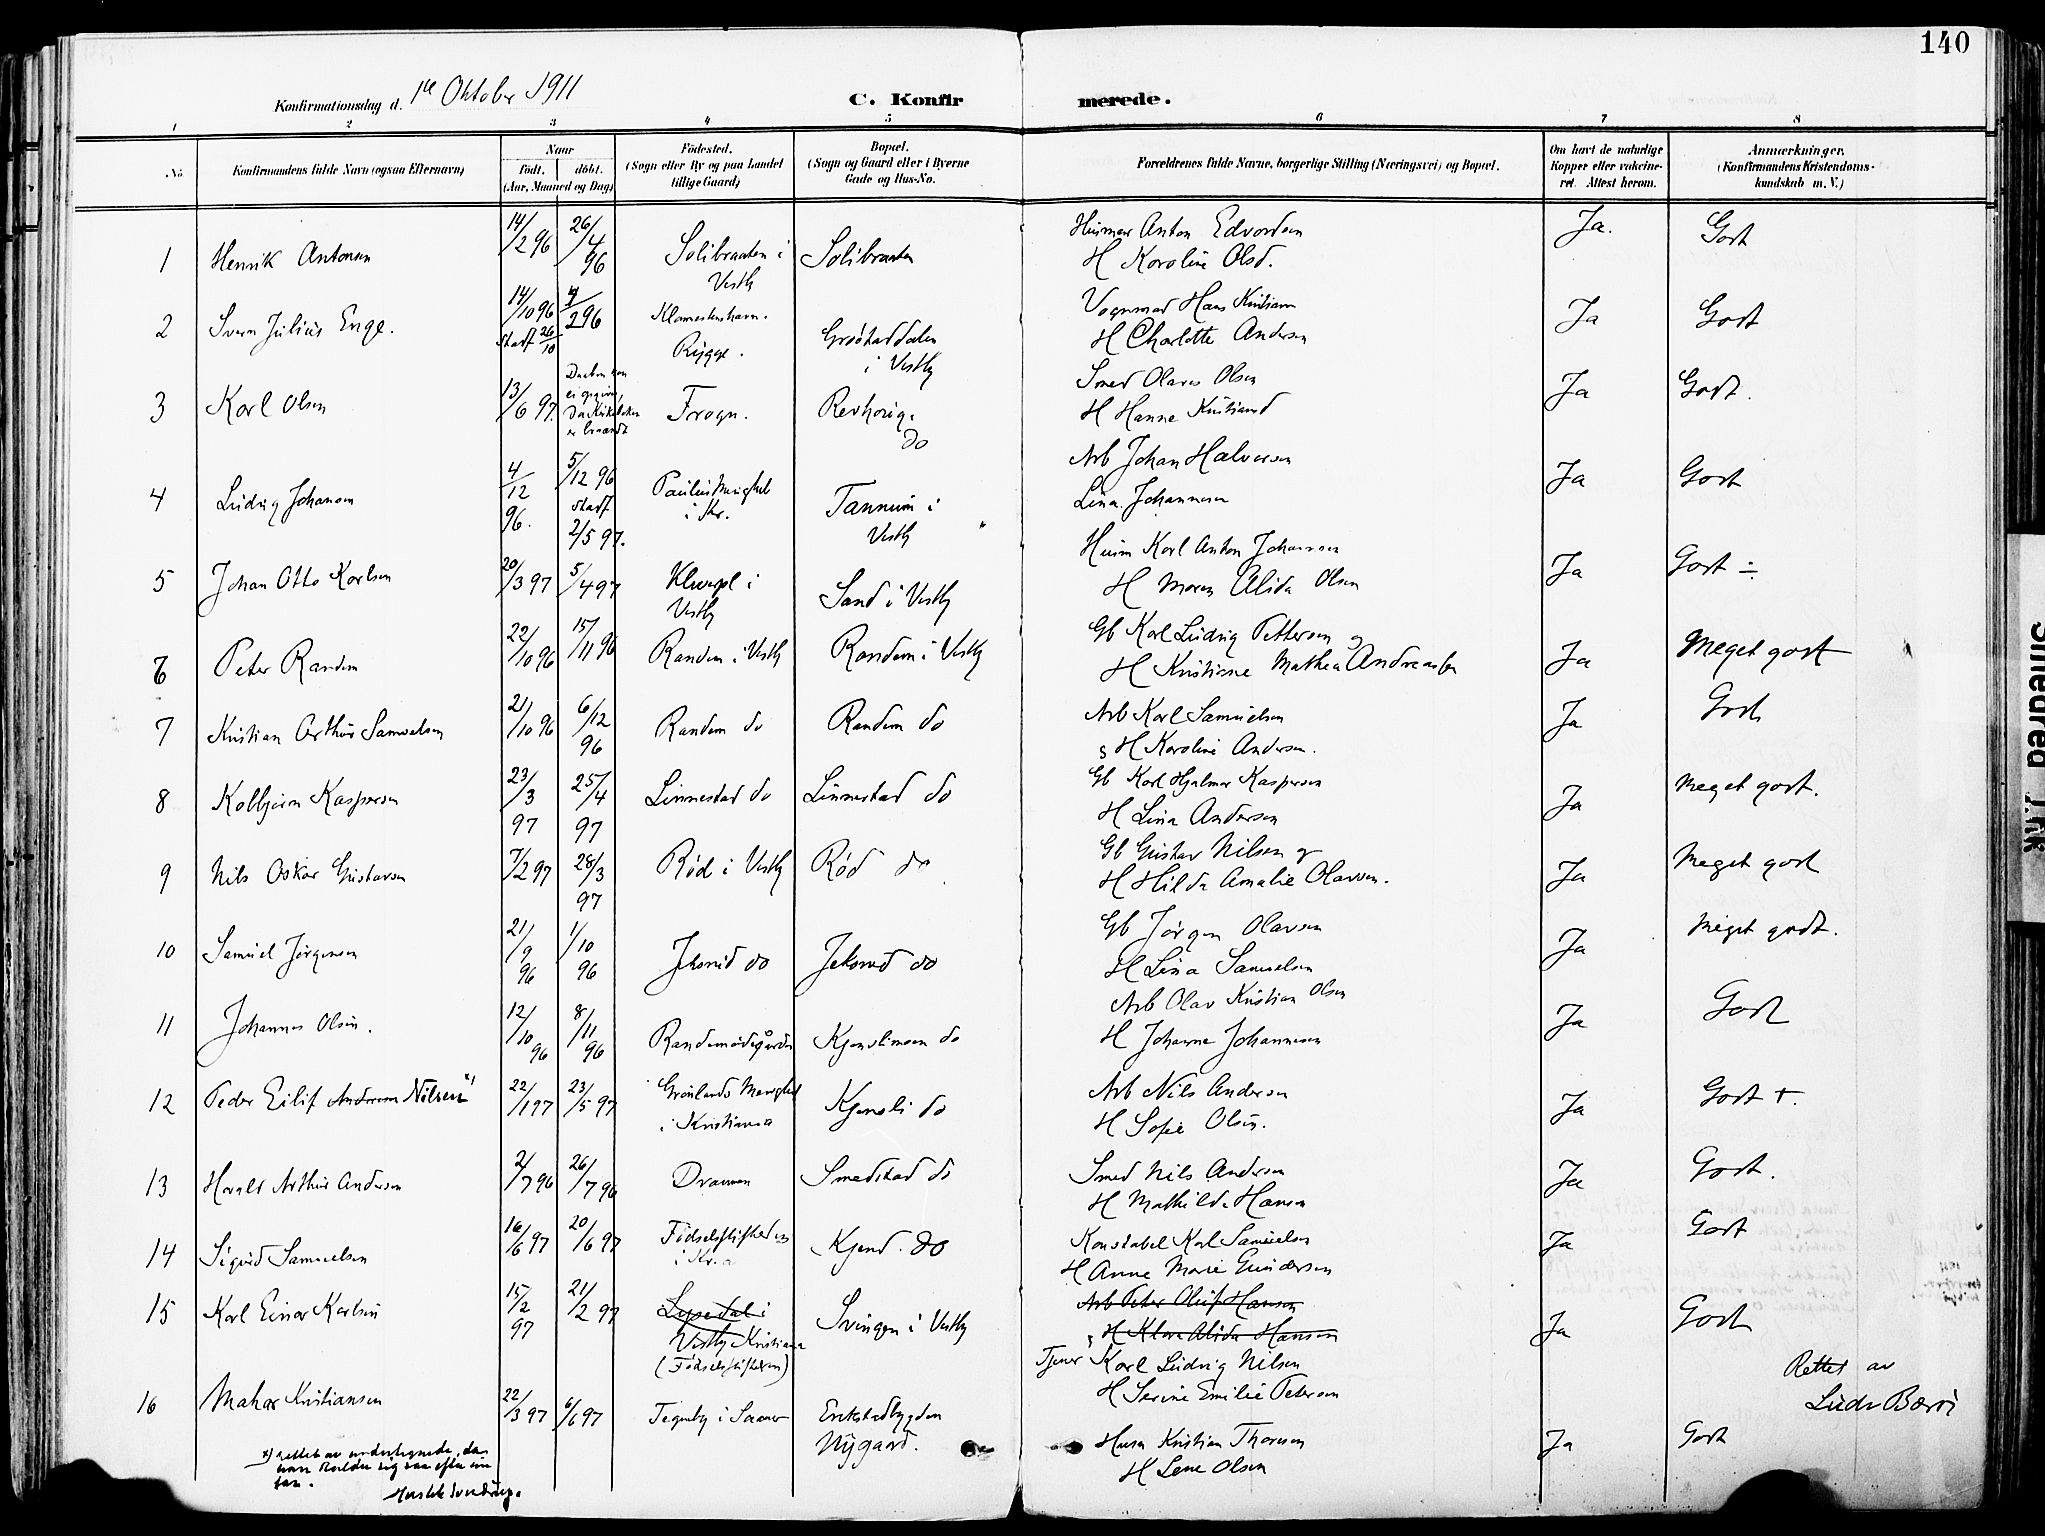 140
Konfirmationsdag d. 1ste Oktober 1911
C. Konfirmerede.
1 2 3 4 5 6 7 8
No.
Konfirmandens fulde Navn (ogsaa Efternavn)
Naar
født. døbt.
(Aar, Maaned og Dag)
Fødested.
(Sogn eller By og paa Landet
tillige Gaard)
Bopæl.
(Sogn og Gaard eller i Byerne
Gade og Hus-No.
Forældrenes fulde Navne, borgerlige Stilling (Næringsvei) og Bopæl.
Om havt de naturlige
Kopper eller vakcine-
ret. Attest herom.
Anmerkninger.
(Konfirmandens Kristendoms-
kundskab m. V.)
1 Henrik Antonsen 14/2 96 26/4 96 Solibraaten i Vestby Solibraaten
Husmand Anton Edvardsen
H Karoline Olsd. Ja. Godt
2 Svern Julius Enge. 14/10 96 stadf 26/10 296
Rygge. i Vestby
Vognmand Hans Kristian
H Charlotte Andersen Ja Godt
3 Karl Olsen 13/6 97. Daaben kan
ei opgives,
da Kirkeboken
er brændt Frogn. Revhaug. do
Smed Olaves Olsen
H Hanne Kristiansd Ja Godt.
4 Ludvig Johansen 4/12 96. 5/12 96 stadf 2/5 97. Paulus Menighed i Kr. Tannum i Vestby
Arb Johan Halvorsen
Lina Johannesen Ja Godt
5 Johan Otto Karlsen 20/3 97 5/4 97 i Vestby Sand i Vestby
Husm Karl Anton Johannesen
H Maren Alida Olsen Ja Godt ÷
6 Peter Randem 22/10 96 15/11 96 Randem i Vestby Randem i Vestby
Gb Karl Ludvig Pettersen og
H Kristiane Mathea Andreasen Ja Meget godt
7 Kristian Arthur Samuelsen 21/10 96 6/12 96 Randem do Randem do
Arb Karl Samuelsen
H Karoline Andersen. Ja Godt
8 Kolbjørn Kaspersen 23/3 97 25/4 97 Linnestad do Linnestad do
Gb Karl Hjalmar Kaspersen
H Lina Andersen Ja Meget godt.
9 Nils Oskar Gustavsen 7/2 97 28/3 97 Rød i Vestby Rød do
Gb Gustav Nilsen og
H Hilda Amalie Olavsen. Ja Meget godt
10 Samuel Jørgensen 21/9 96 1/10 96 Jeksrud do Jeksrud do
Gb Jørgen Olavsen
H Lina Samuelsen Ja Meget godt.
11 Johannes Olsen. 12/10 96 8/11 96 Randemødegaarden Kjenslimoen do
Arb Olav Kristian Olsen
H Johanne Johannesen Ja Godt
12 Peder Eilif Andersen Nilsen x) 22/1 97 23/5 97 Grønlands Menighed
i Kristiania Kjensli do
Arb Nils Andersen
H Sofie Olsen. Ja Godt +.
13 Harald Arthur Andersen 2/7 96 26/7 96 Drammen Smedstad do
Smed Nils Andersen
H Mathilde Hansen Ja Godt.
14 Sigurd Samuelsen 16/6 97 20/6 97 Fødselsstiftelsen
i Kr.a Kjend. do
Konstabel Karl Samuelsen
H Anne Marie Gundersen Ja Godt
15 Karl Einar Karlsen 15/2 97 21/2 97 Lysedal i
Vestby Kristiania
(Fødselsstiftelsen) Svingen i Vestby
Arb Peter Oluf Hansen
H Klara Alida Hansen
Tjener Karl Ludvig Nilsen
H Serine Emilie Petersen Ja Godt
Rettet av
16 Kristiansen 22/3 97 6/6 97 Tegneby i Saaner Erikstadbygden
Nygaard.
Husm Kristian Thoresen
H Lene Olsen Ja Godt
x) rettet av undertegnede, da
han kalder sig saa efter sin
far.